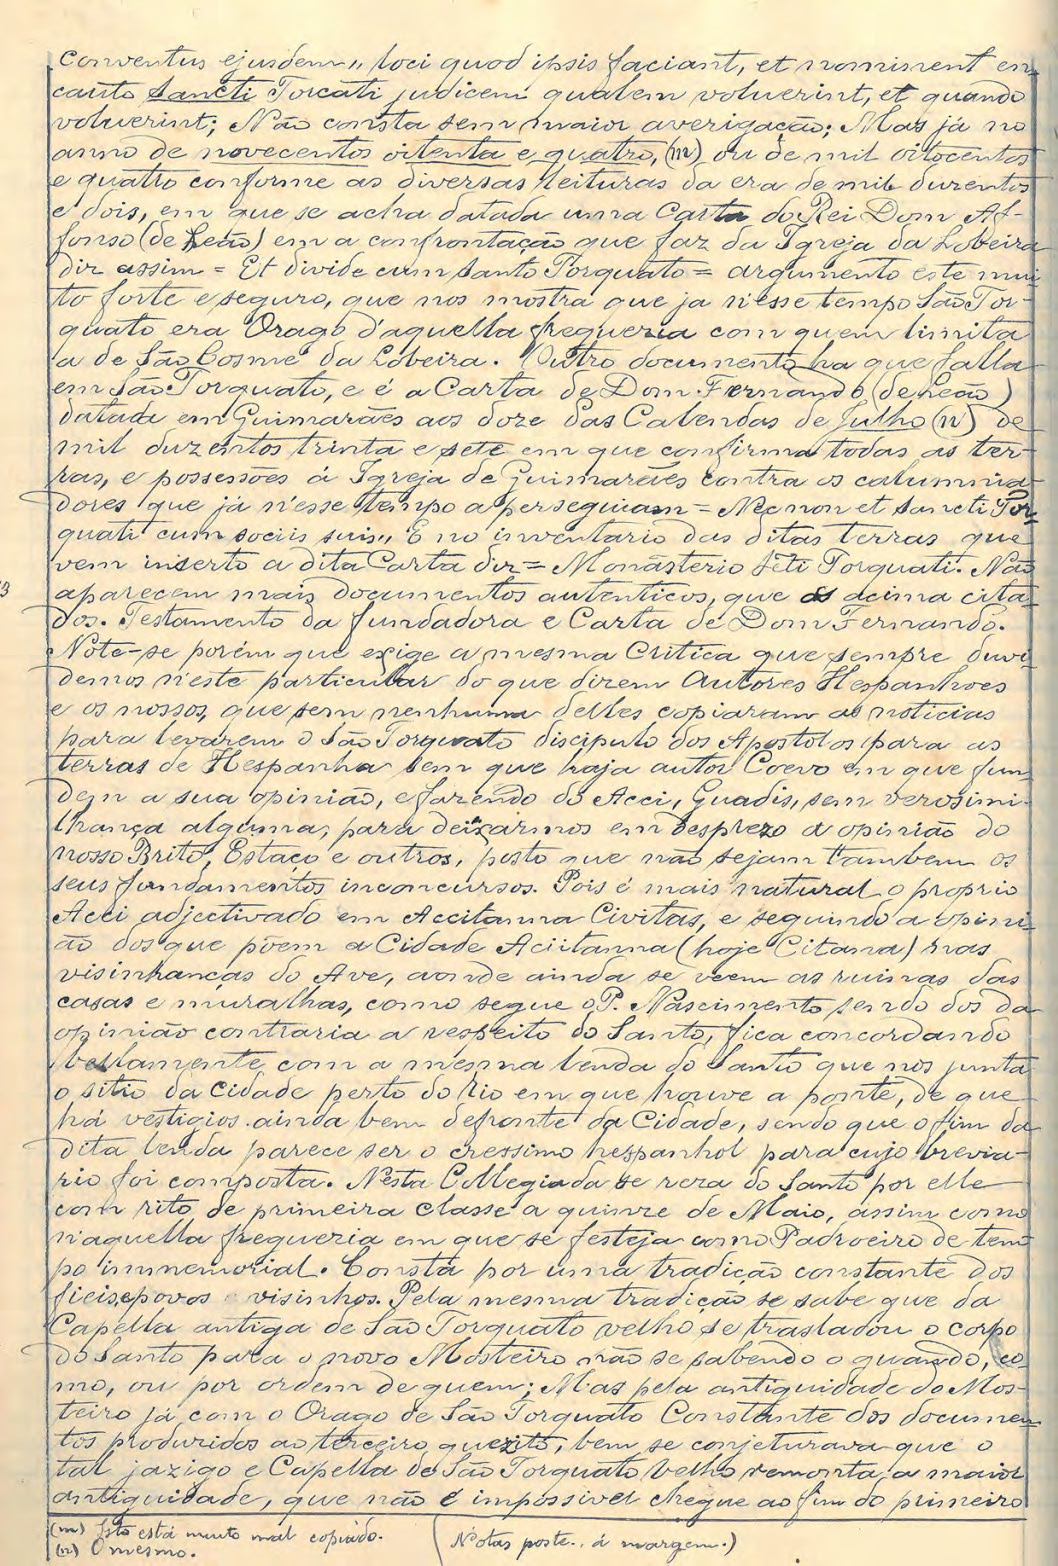 conventus ejusdem,, loci quod ipsis faciant, et nominent en
cauto Sancti Torcati judicem qualem voluerint, et quando
voluerint; Não consta sem maior averigação; Mas já no
anno de novecentos oitenta e quatro, (m) ou de mil oitocentos
e quatro conforme as diversas leituras da era de mil duzentos
e dois, em que se acha datada uma Carta do Rei Dom Af-
fonso (de Leão) em a confrontação que faz da Igreja da Lobeira
diz assim = Et divide cum Santo Torquato = argumento este mui
to forte e seguro, que nos mostra que ja n'esse tempo São Tor-
quato era Orago d'aquella freguezia com quem limita
a de São Cosme da Lobeira. Outro documento ha que falla
em São Torquato, e é a Carta de Dom Fernando (de Leão)
datada em Guimarães aos doze das Calendas de Julho (n) de
mil duzentos trinta e sete em que confirma todas as ter-
ras, e possessões á Igreja de Guimarães contra os calumnia-
dores que já n'esse tempo a perseguiam = Necnon et Sancti Tor-
quati cum sociis suis,, E no inventario das ditas terras que
vem inserto a dita Carta diz = Monasterio Sti Torquati. Não
aparecem mais documentos autenticos, que os acima cita-
dos. Testamento da fundadora e Carta de Dom Fernando.
Note-se porém que exige a mesma Critica que sempre duvi-
demos n'este particular do que dizem Autores Hespanhoes
e os nossos, que sem nenhuma delles copiaram as noticias
para levarem o São Torquato discipulo dos Apostolos para as
terras de Hespanha sem que haja autor Coevo em que fun-
dem a sua opinião, e fazendo do Acci, Guadis, sem verosimi-
lhança alguma, para deixarmos em desprezo a opinião do
nosso Brito, Estaço e outros, posto que não sejam tambem os
seus fundamentos inconcursos. Pois é mais natural o proprio
Acci adjectivado em Accitanna Civitas, e seguindo a opini-
ão dos que põem a Cidade Aciitanna (hoje Citania) nas
visinhanças do Ave, aonde ainda se veem as ruinas das
casas e muralhas, como segue o P. Nascimento sendo dos da
opinião contraria a respeito do Santo, fica concordando
bellamente com a mesma lenda do Santo que nos junta
o sitio da Cidade perto do rio em que houve a ponte, de que
há vestigios ainda bem defronte da Cidade, sendo que o fim da
dita lenda parece ser o cressimo hespanhol para cujo brevia-
rio foi composta. Nesta Collegiada se reza do Santo por elle
com rito de primeira classe a quinze de Maio, assim como
n'aquella freguezia em que se festeja como Padroeiro de tem-
po immemorial. Consta por uma tradição constante dos
fieis, e povos visinhos. Pela mesma tradição se sabe que da
Capella antiga de São Torquato velho se trasladou o corpo
do Santo para o novo Mosteiro não se sabendo o quando, co-
mo, ou por ordem de quem; Mas pela antiguidade do Mos-
teiro já com o Orago de São Torquato Constante dos documen-
tos produzidos ao terceiro quezito, bem se conjeturava que o
tal jazigo e Capella de São Torquato velho remonta a maior
antiguidade, que não é impossivel chegue ao fim do primeiro
(m) Isto está muito mal copiado.
(n) O mesmo.
(Notas poste. á margem.)